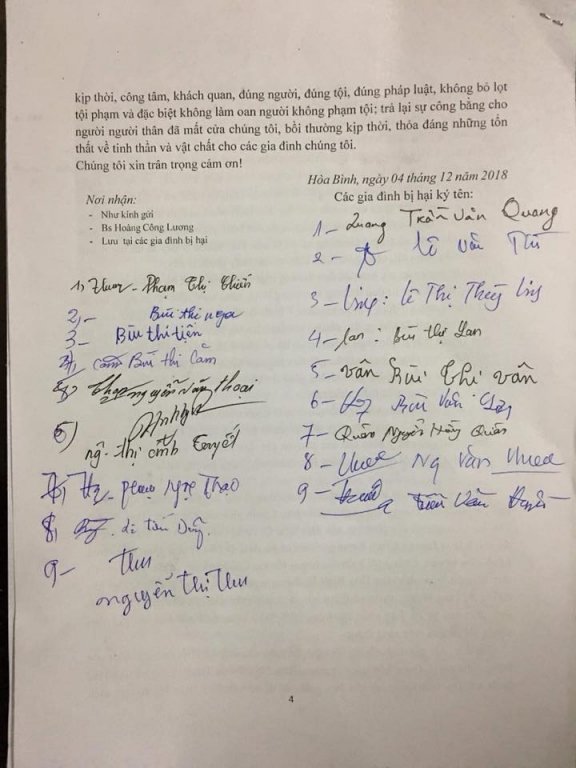 kịp thời, công tâm, khách quan, đúng người, đúng tội, đúng pháp luật, không bỏ lọt
tội phạm và đặc biệt không làm oan người không phạm tội; trả lại sự công bằng cho
người người thân đã mất cửa chúng tôi, bồi thường kịp thời, thỏa đáng những tổn
thất về tinh thần và vật chất cho các gia đình chúng tôi.
Chúng tôi xin trân trọng cảm ơn!
Hòa Bình, ngày 04 tháng 12 năm 2018
Nơi nhận:
- Như kính gửi
- Bs Hoàng Công Lương
- Lưu tại các gia đình bị hại
Các gia đình bị hại ký tên:
1- Quang Trần Văn Quang
2- Lê Văn
3- Linh: Lê Thị Thùy Linh
4- Lan: Bùi Thị Lan
5- Vân Bùi Thi Vân
6- Bùi Văn
7- Quân Nguyễn Hồng Quân
8- Ng Văn
9- Trần Văn
1) Phạm Thị
2,- Bùi thi nga
3- Bùi thi tiện
4, Cắm Bùi thi Cắm
5, Thoại nguyễn văn thoại
6) ng- thị ánh tuyết
7, phạm ngọc Thao
8,
9- thu
nguyễn thị thu
4